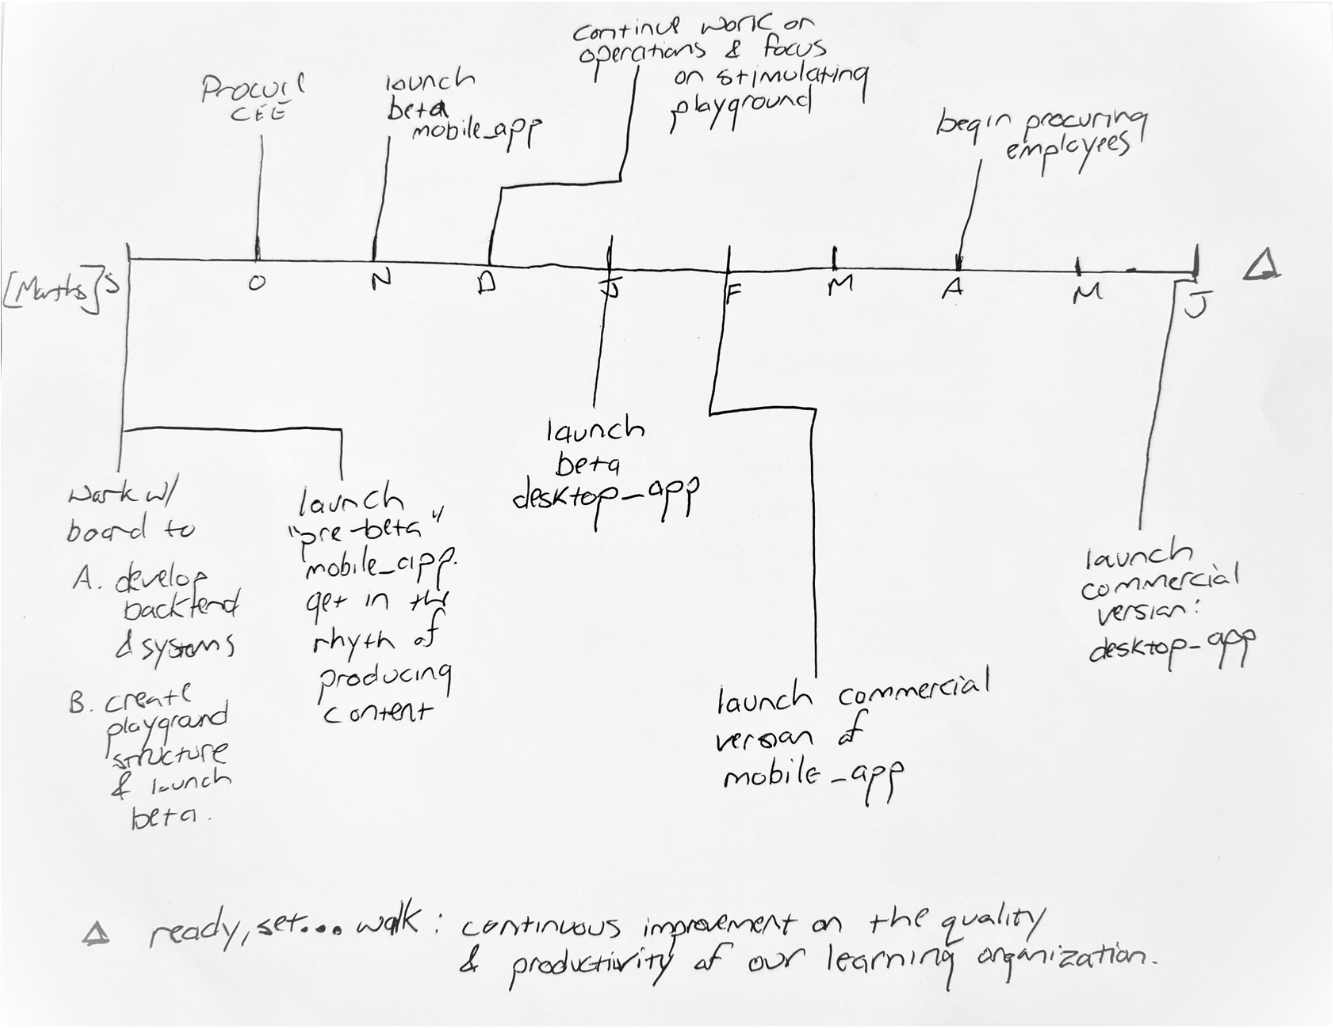 continue work on
operations & focus
on stimulating
playground
Procure
CEE
launch
beta
mobile_app
begin procuring
employees
[Months] S O N D J F M A M J Δ
work w/
board to
A. develop
backend
& systems
B. create
playground
structure
& launch
beta.
launch
"pre-beta"
mobile_app.
get in the
rhyth of
producing
content
launch
beta
desktop_app
launch commercial
version of
mobile_app
launch
commercial
version:
desktop_app
Δ ready, set... walk: continuous improvement on the quality
& productivity of our learning organization.